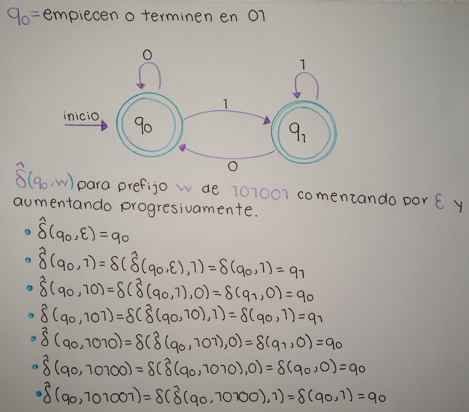 q₀=empiecen o terminen en 01
0
1
inicio
q₀
1
q₁
0
δ̂(q₀,w) para prefijo w de 101001 comenzando por ε y
aumentando progresivamente.
• δ̂(q₀,ε)=q₀
• δ̂(q₀,1)=δ(δ̂(q₀,ε),1)=δ(q₀,1)=q₁
• δ̂(q₀,10)=δ(δ̂(q₀,1),0)=δ(q₁,0)=q₀
• δ̂(q₀,101)=δ(δ̂(q₀,10),1)=δ(q₀,1)=q₁
• δ̂(q₀,1010)=δ(δ̂(q₀,101),0)=δ(q₁,0)=q₀
• δ̂(q₀,10100)=δ(δ̂(q₀,1010),0)=δ(q₀,0)=q₀
• δ̂(q₀,101001)=δ(δ̂(q₀,10100),1)=δ(q₀,1)=q₀